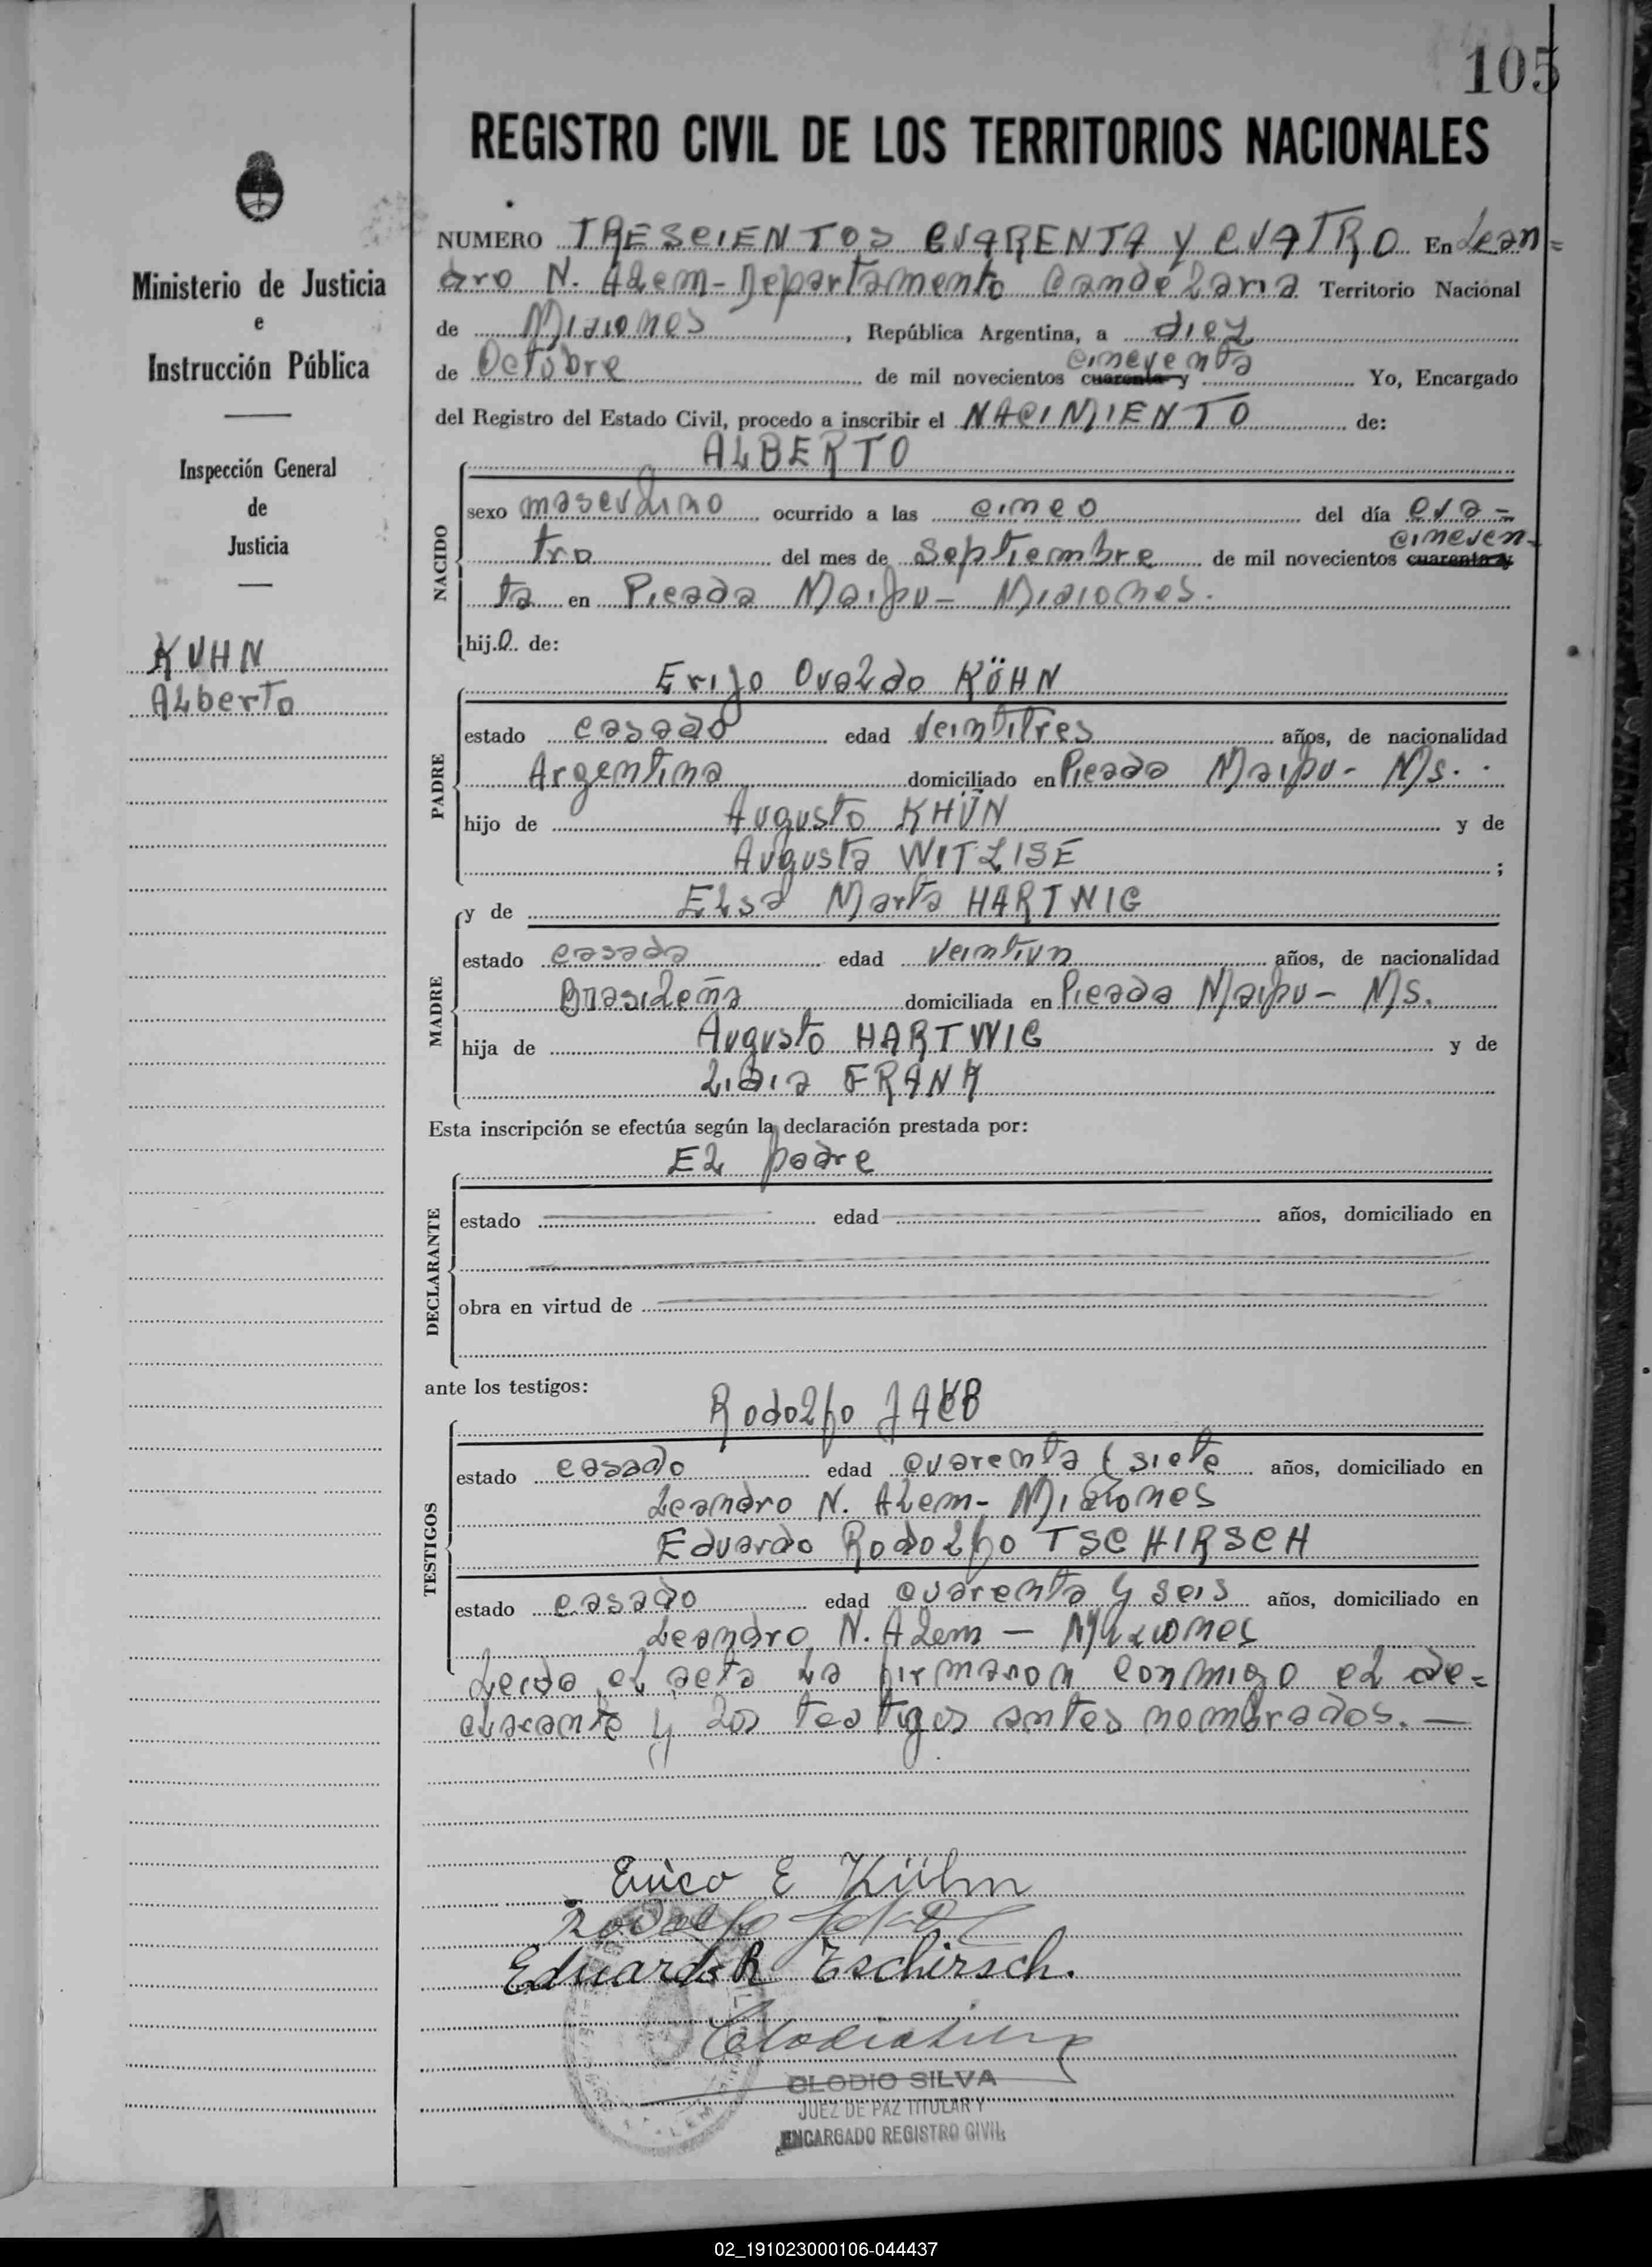 105
REGISTRO CIVIL DE LOS TERRITORIOS NACIONALES
Ministerio de Justicia
e
Instrucción Pública
Inspección General
de
Justicia
KUHN
Alberto
NUMERO TRESCIENTOS CUARENTA Y CUATRO En Lean=
dro N. Alem - Departamento Candelaria Territorio Nacional
de Misiones, República Argentina, a diez
de Octubre de mil novecientos cuarenta y cincuenta Yo, Encargado
del Registro del Estado Civil, procedo a inscribir el NACIMIENTO de:
ALBERTO
NACIDO
sexo masculino ocurrido a las cinco del día cua=
tro del mes de Septiembre de mil novecientos cuarenta y cincuen-
ta en Picada Maipu - Misiones.
hijo de:
PADRE
Erijo Ovaldo KÜHN
estado casado edad veintitres años, de nacionalidad
Argentina domiciliado en Picada Maipu - Ms.
hijo de Augusto KHÜN y de
Augusta WITLISE ;
MADRE
y de Elsa Marta HARTWIG
estado casada edad veintiun años, de nacionalidad
Brasileña domiciliada en Picada Maipu - Ms.
hija de Augusto HARTWIG y de
Lidia FRANK
Esta inscripción se efectúa según la declaración prestada por:
DECLARANTE
El padre
estado edad años, domiciliado en
obra en virtud de
ante los testigos:
TESTIGOS
Rodolfo JAKOB
estado casado edad cuarenta y siete años, domiciliado en
Leandro N. Alem - Misiones
Eduardo Rodolfo TSCHIRSCH
estado casado edad cuarenta y seis años, domiciliado en
Leandro N. Alem - Misiones
Leida el acta la firmaron conmigo el de=
clarante y los testigos antes nombrados. -
Erico E Kühn
Rodolfo Jakob
Eduardo R Tschirsch.
CLODIO SILVA
JUEZ DE PAZ TITULAR Y
ENCARGADO REGISTRO CIVIL
02_191023000106-044437